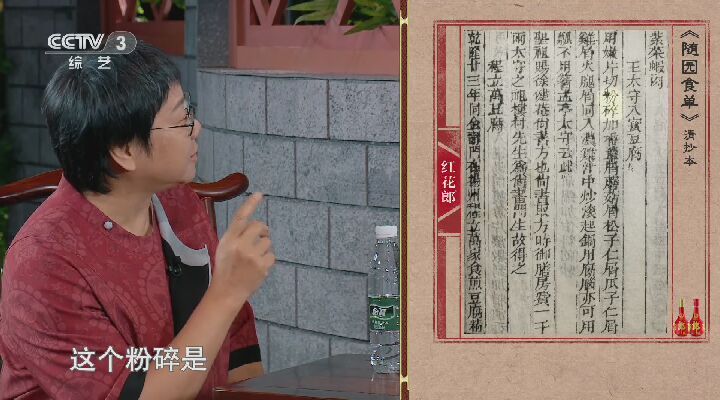 CCTV 3
综艺
《随园食单》清抄本
紫菜蝦肉
王太守八寶豆腐
用嫩片切粉碎加香蕈屑蘑菇屑松子仁屑瓜子仁屑
雞屑火腿屑同入濃雞汁中炒滾起鍋用腐腦亦可用
瓢不用箸孟亭太守云此
聖祖賜徐健庵尚書方也尚書取方時御膳房費一千
兩太守之祖樓村先生為尚書門生故得之
程立萬豆腐
乾隆廿三年同金壽門在揚州程立萬家食煎豆腐精
红花郎
郎
郎
这个粉碎是